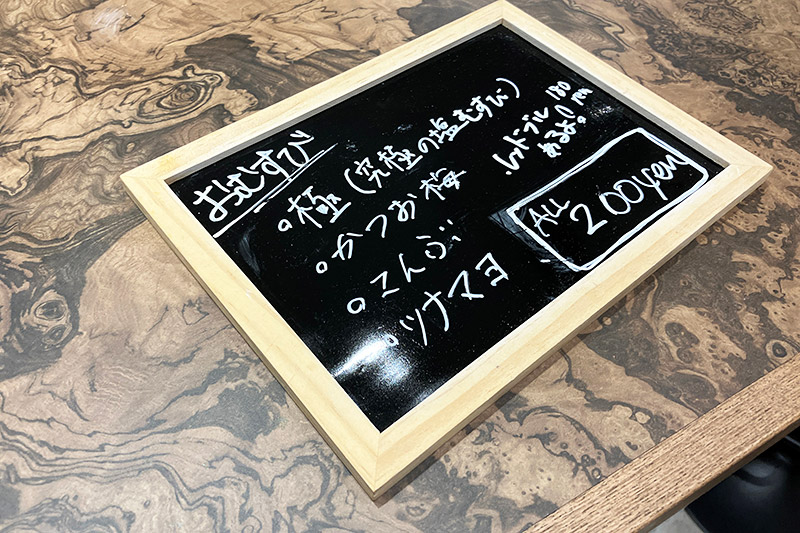 おむすび
。極(究極の塩むすび)
。かつお梅
。こんぶ
。ツナマヨ
.レッドブル 180 yen
あるよ。
ALL
200yen